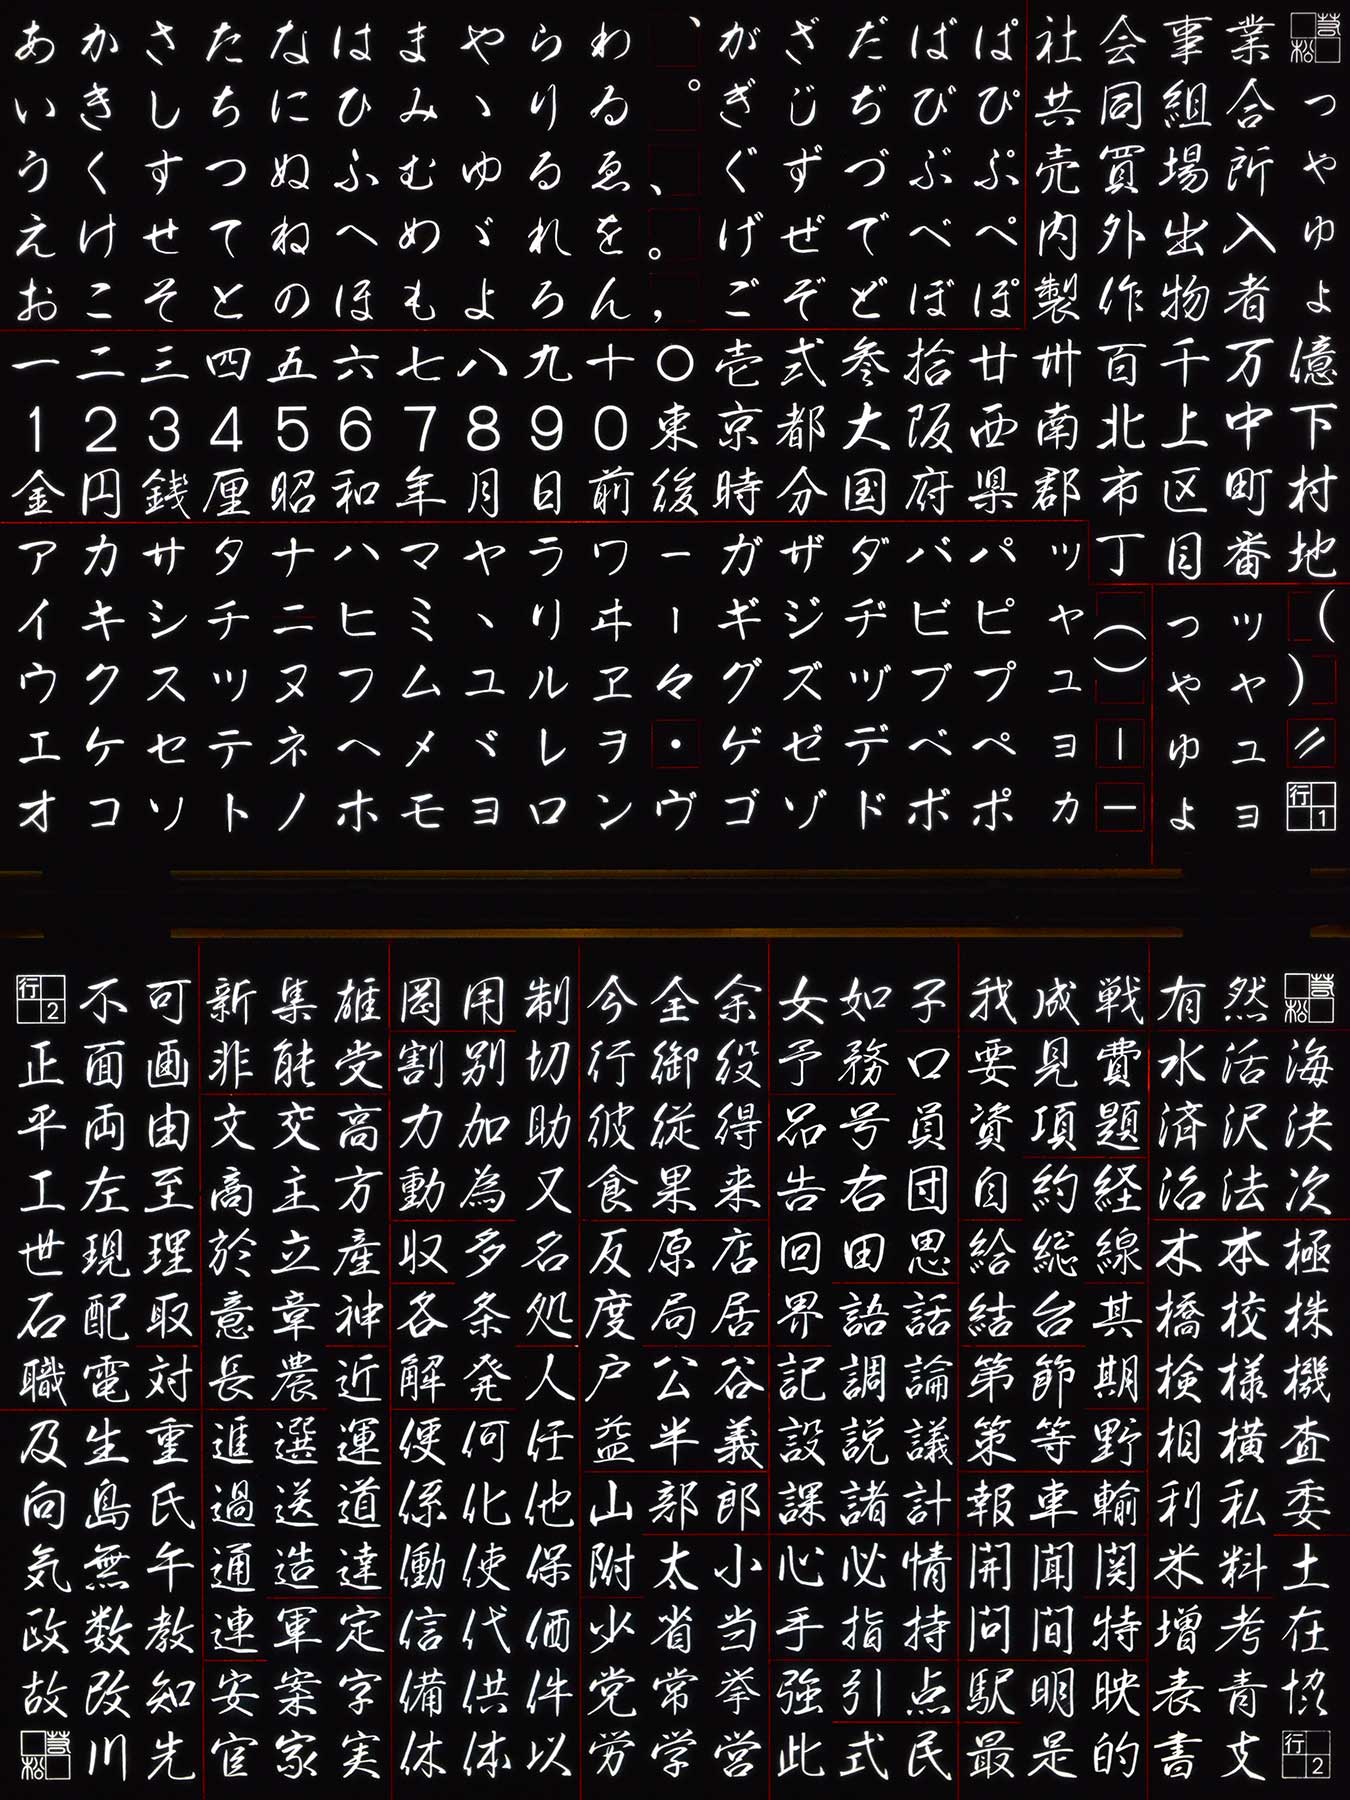 あかさたなはまやらわ、がざだばぱ社会事業松
いきしちにひみゝりゐ。ぎじぢびぴ共同組合っ
うくすつぬふむゆるゑ、ぐずづぶぷ売買場所ゃ
えけせてねへめゞれを。げぜでべぺ内外出入ゅ
おこそとのほもよろん，ごぞどぼぽ製作物者ょ
一二三四五六七八九十〇壱弐参拾廿卅百千万億
1234567890東京都大阪西南北上中下
金円銭厘昭和年月日前後時分国府県郡市区町村
アカサタナハマヤラワーガザダバパッ丁目番地
イキシチニヒミヽリヰ｜ギジヂビピャ︵っッ（
ウクスツヌフムユルヱ々グズヅブプュ︶ゃャ）
エケセテネヘメヾレヲ・ゲゼデベペョ｜ゅュ〃
オコソトノホモヨロンヴゴゾドボポヵ―ょョ行1
行2不可新集雄岡用制今全余女如子我成戦有然松
正面画非能受割別切行御役予務口要見費水活海
平両由文交高力加助彼従得品号員資項題済沢決
工左至商主方動為又食果来告右団自約経治法次
世現理於立産収多名反原店回田思給総線木本極
石配取意章神各条処度局居界語話結台其橋校株
職電対長農近解発人戸公谷記調論第節期検様機
及生重進選運便何任益半義設説議策等野相横査
向島氏過送道係化他山部郎課諸計報車輸利私委
気無午通造達働使保附太小心必情開聞関米料土
政数教連軍定信代価少省当手指持問間特増考在
故改知安案字備供件党常挙強引点駅明映表青協
松川先官家実休体以労学営此式民最是的書支行2